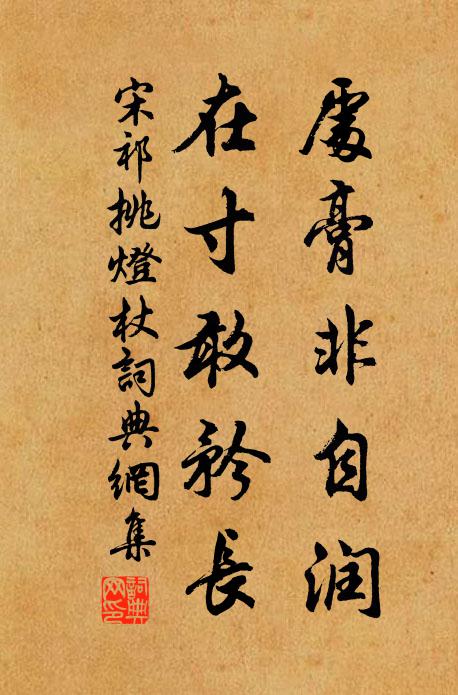 處膏非自润
在寸敢矜長
宋祁挑燈杖詞典網集
詞典网印